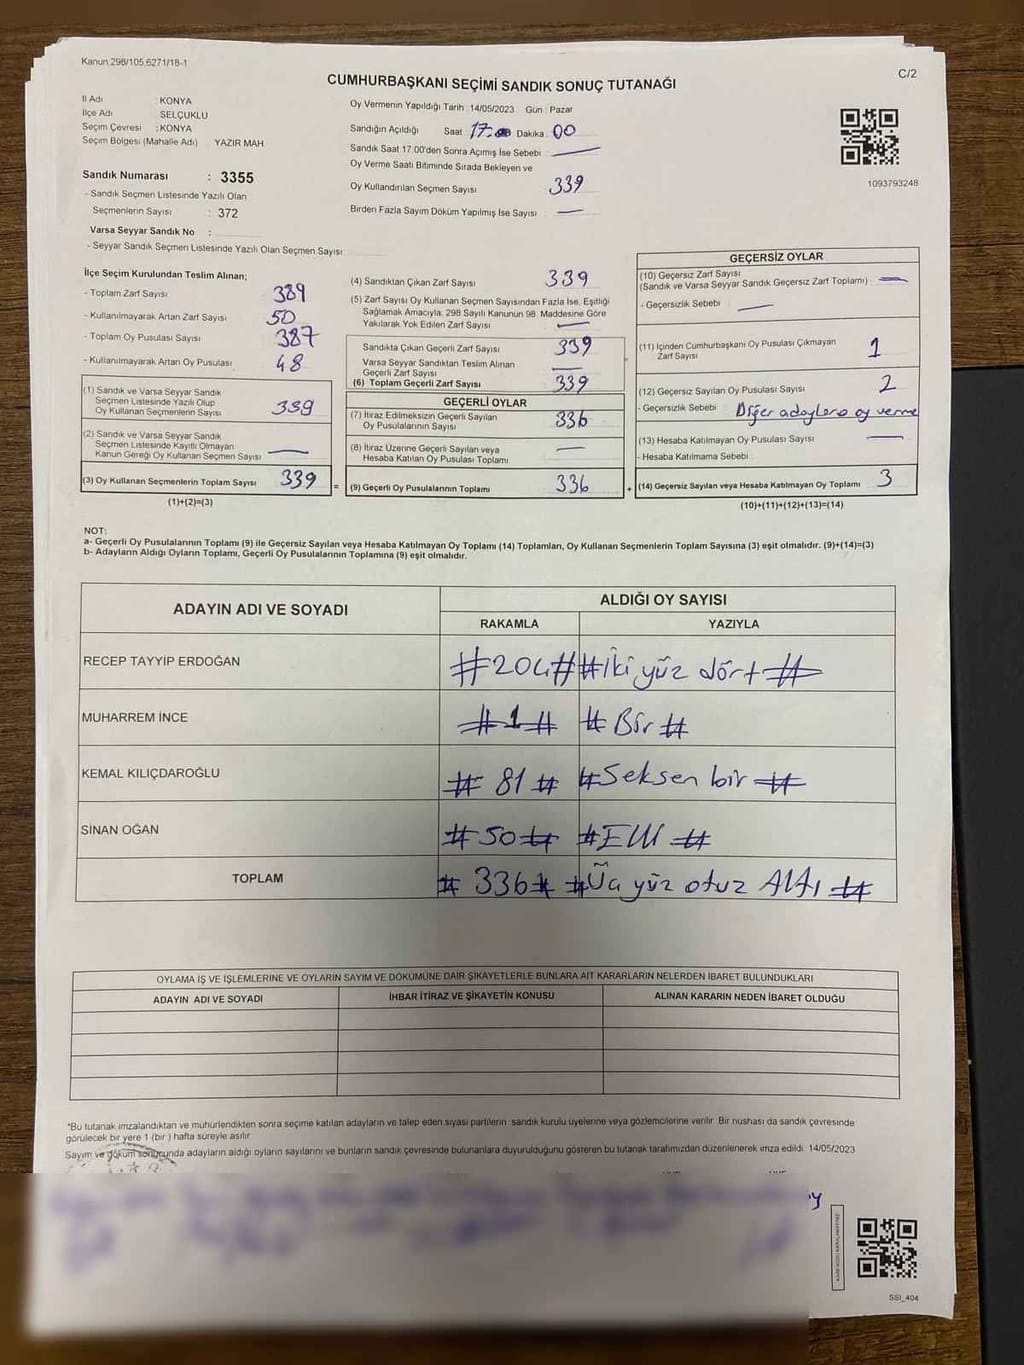 Kanun 298/105,6271/18-1
C/2
CUMHURBAŞKANI SEÇİMİ SANDIK SONUÇ TUTANAĞI
İl Adı KONYA
İlçe Adı SELÇUKLU
Seçim Çevresi : KONYA
Seçim Bölgesi (Mahalle Adı) YAZIR MAH
Sandık Numarası : 3355
- Sandık Seçmen Listesinde Yazılı Olan
Seçmenlerin Sayısı : 372
Varsa Seyyar Sandık No :
- Seyyar Sandık Seçmen Listesinde Yazılı Olan Seçmen Sayısı
Oy Vermenin Yapıldığı Tarih : 14/05/2023 Gün : Pazar
Sandığın Açıldığı Saat 17:00 Dakika : 00
Sandık Saat 17.00'den Sonra Açımış İse Sebebi :
Oy Verme Saati Bitiminde Sırada Bekleyen ve
Oy Kullandırılan Seçmen Sayısı 339
Birden Fazla Sayım Döküm Yapılmış İse Sayısı :
1093793248
İlçe Seçim Kurulundan Teslim Alınan;
- Toplam Zarf Sayısı 389
- Kullanılmayarak Artan Zarf Sayısı 50
- Toplam Oy Pusulası Sayısı 387
- Kullanılmayarak Artan Oy Pusulası 48
(1) Sandık ve Varsa Seyyar Sandık
Seçmen Listesinde Yazılı Olup
Oy Kullanan Seçmenlerin Sayısı 339
(2) Sandık ve Varsa Seyyar Sandık
Seçmen Listesinde Kayıtlı Olmayan
Kanun Gereği Oy Kullanan Seçmen Sayısı
(3) Oy Kullanan Seçmenlerin Toplam Sayısı 339
(1)+(2)=(3)
(4) Sandıktan Çıkan Zarf Sayısı 339
(5) Zarf Sayısı Oy Kullanan Seçmen Sayısından Fazla İse, Eşitliği
Sağlamak Amacıyla; 298 Sayılı Kanunun 98. Maddesine Göre
Yakılarak Yok Edilen Zarf Sayısı
Sandıkta Çıkan Geçerli Zarf Sayısı 339
Varsa Seyyar Sandıktan Teslim Alınan
Geçerli Zarf Sayısı
(6) Toplam Geçerli Zarf Sayısı 339
GEÇERLİ OYLAR
(7) İtiraz Edilmeksizin Geçerli Sayılan
Oy Pusulalarının Sayısı 336
(8) İtiraz Üzerine Geçerli Sayılan veya
Hesaba Katılan Oy Pusulası Toplamı
= (9) Geçerli Oy Pusulalarının Toplamı 336
GEÇERSİZ OYLAR
(10) Geçersiz Zarf Sayısı
(Sandık ve Varsa Seyyar Sandık Geçersiz Zarf Toplamı) :
- Geçersizlik Sebebi :
(11) İçinden Cumhurbaşkanı Oy Pusulası Çıkmayan
Zarf Sayısı 1
(12) Geçersiz Sayılan Oy Pusulası Sayısı 2
- Geçersizlik Sebebi : Diğer adaylara oy verme
(13) Hesaba Katılmayan Oy Pusulası Sayısı
- Hesaba Katılmama Sebebi :
+ (14) Geçersiz Sayılan veya Hesaba Katılmayan Oy Toplamı 3
(10)+(11)+(12)+(13)=(14)
NOT:
a- Geçerli Oy Pusulalarının Toplamı (9) ile Geçersiz Sayılan veya Hesaba Katılmayan Oy Toplamı (14) Toplamları, Oy Kullanan Seçmenlerin Toplam Sayısına (3) eşit olmalıdır. (9)+(14)=(3)
b- Adayların Aldığı Oyların Toplamı, Geçerli Oy Pusulalarının Toplamına (9) eşit olmalıdır.
ADAYIN ADI VE SOYADI ALDIĞI OY SAYISI
RAKAMLA YAZIYLA
RECEP TAYYİP ERDOĞAN #204# #İki yüz dört#
MUHARREM İNCE #1# #Bir#
KEMAL KILIÇDAROĞLU #81# #Seksen bir#
SİNAN OĞAN #50# #Elli#
TOPLAM #336# #Üç yüz otuz Altı#
OYLAMA İŞ VE İŞLEMLERİNE VE OYLARIN SAYIM VE DÖKÜMÜNE DAİR ŞİKAYETLERLE BUNLARA AİT KARARLARIN NELERDEN İBARET BULUNDUKLARI
ADAYIN ADI VE SOYADI İHBAR İTİRAZ VE ŞİKAYETİN KONUSU ALINAN KARARIN NEDEN İBARET OLDUĞU
*Bu tutanak imzalandıktan ve mühürlendikten sonra seçime katılan adayların ve talep eden siyasi partilerin sandık kurulu üyelerine veya gözlemcilerine verilir. Bir nüshası da sandık çevresinde
görülecek bir yere 1 (bir ) hafta süreyle asılır.
Sayım ve döküm sonucunda adayların aldığı oyların sayılarını ve bunların sandık çevresinde bulunanlara duyurulduğunu gösteren bu tutanak tarafımızdan düzenlenerek imza edildi. 14/05/2023
SSI_404